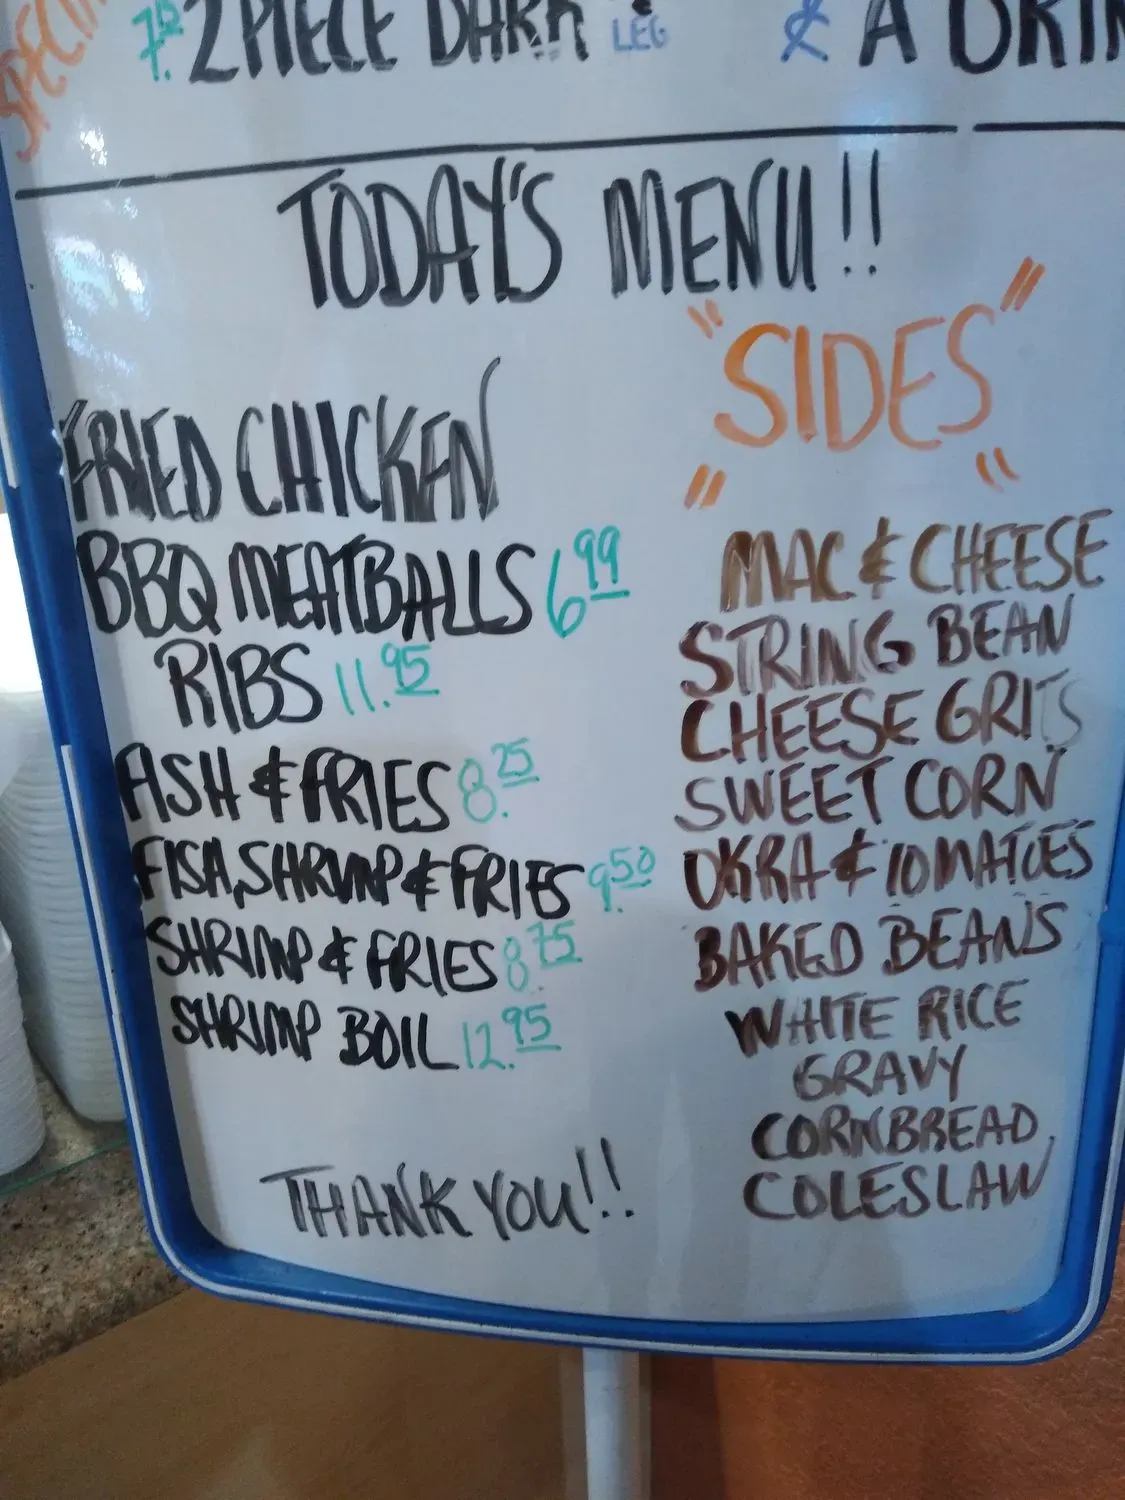 2 PIECE DARK & LEG & A DRIN
TODAY'S MENU!!
"SIDES"
FRIED CHICKEN
BBQ MEATBALLS 6.99
RIBS 11.95
FISH & FRIES 8.25
FISH, SHRIMP & FRIES 9.50
SHRIMP & FRIES 8.75
SHRIMP BOIL 12.95
THANK YOU!!
MAC & CHEESE
STRING BEAN
CHEESE GRITS
SWEET CORN
OKRA & TOMATOES
BAKED BEANS
WHITE RICE
GRAVY
CORNBREAD
COLESLAW